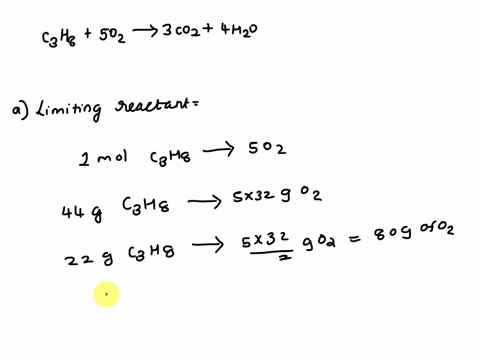 C₃H₈ + 5O₂ → 3CO₂ + 4H₂O
a) Limiting reactant =
1 mol C₃H₈ → 5O₂
44 g C₃H₈ → 5×32 g O₂
22 g C₃H₈ → 5×32/2 gO₂ = 80g of O₂